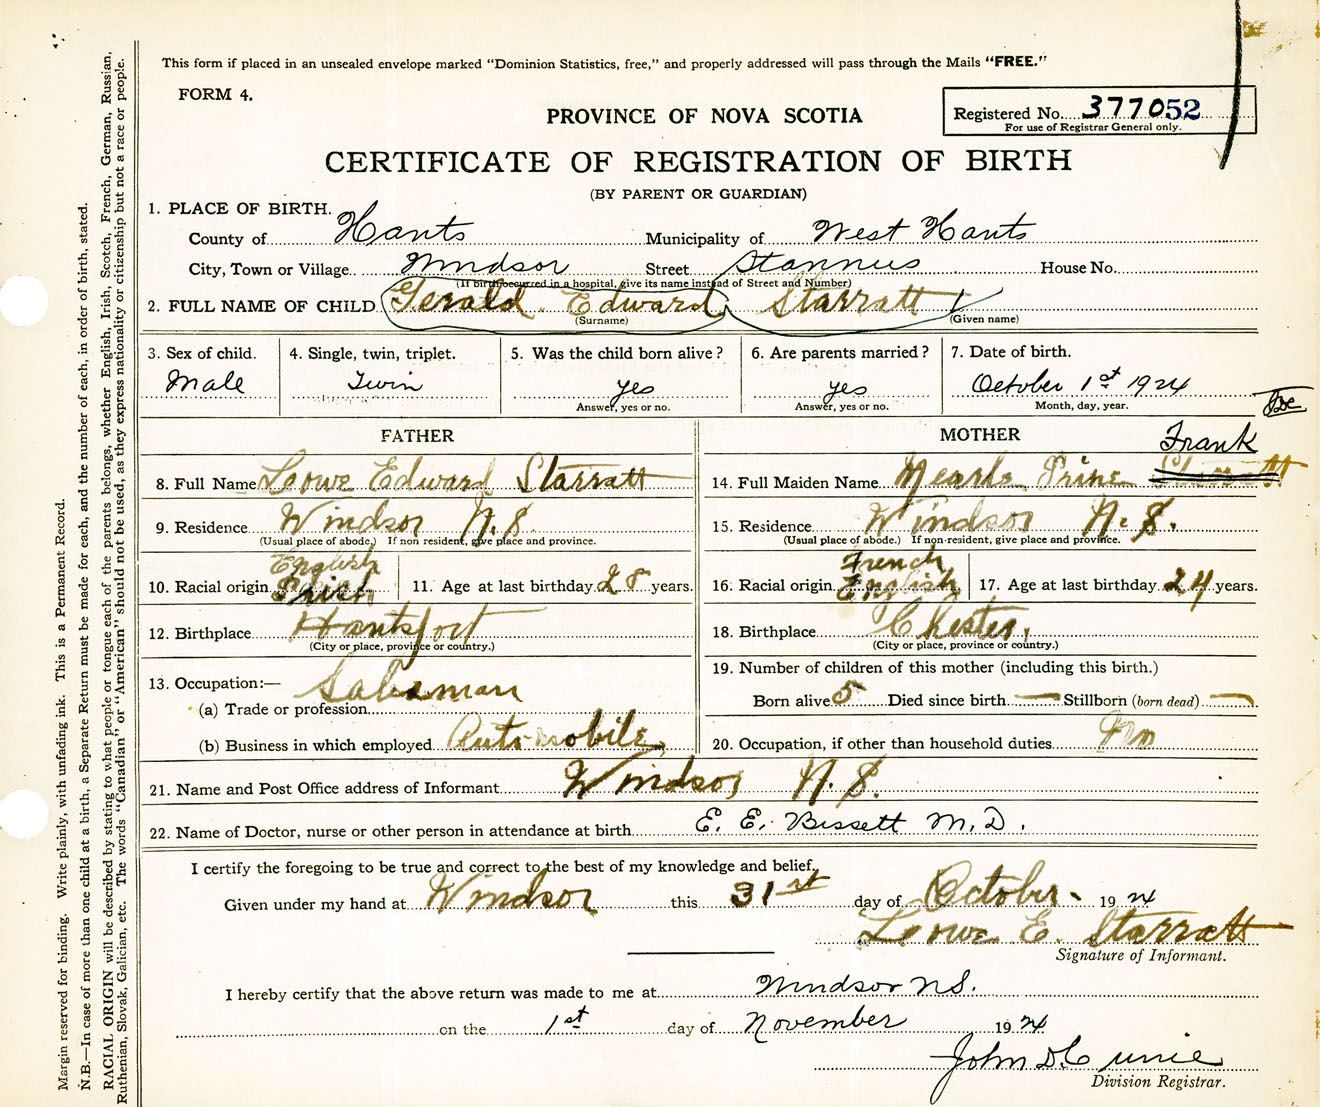 This form if placed in an unsealed envelope marked "Dominion Statistics, free," and properly addressed will pass through the Mails "FREE."
FORM 4.
PROVINCE OF NOVA SCOTIA
Registered No. 377052
For use of Registrar General only.
CERTIFICATE OF REGISTRATION OF BIRTH
(BY PARENT OR GUARDIAN)
1. PLACE OF BIRTH.
County of Hants Municipality of West Hants
City, Town or Village Windsor Street Stannus House No.
(If birth occurred in a hospital, give its name instead of Street and Number)
2. FULL NAME OF CHILD Gerald Edward Starratt
(Surname) (Given name)
3. Sex of child. 4. Single, twin, triplet. 5. Was the child born alive? 6. Are parents married? 7. Date of birth.
Male Twin yes yes October 1st 1924
Answer, yes or no. Answer, yes or no. Month, day, year.
FATHER MOTHER
Frank
8. Full Name Leowe Edward Starratt 14. Full Maiden Name Mearle Prine
9. Residence Windsor N.S. 15. Residence Windsor N.S.
(Usual place of abode.) If non resident, give place and province. (Usual place of abode.) If non-resident, give place and province.
English French
10. Racial origin 11. Age at last birthday 28 years. 16. Racial origin English 17. Age at last birthday 24 years.
12. Birthplace Hantsport 18. Birthplace Chester,
(City or place, province or country.) (City or place, province or country.)
13. Occupation:— Salesman 19. Number of children of this mother (including this birth.)
(a) Trade or profession Born alive 5 Died since birth — Stillborn (born dead) —
(b) Business in which employed Automobile 20. Occupation, if other than household duties
21. Name and Post Office address of Informant Windsor N.S.
22. Name of Doctor, nurse or other person in attendance at birth E. E. Bissett M.D.
I certify the foregoing to be true and correct to the best of my knowledge and belief,
Given under my hand at Windsor this 31st day of October 1924
Leowe E. Starratt
Signature of Informant.
I hereby certify that the above return was made to me at Windsor N.S.
on the 1st day of November 1924
John D.
Division Registrar.
Margin reserved for binding. Write plainly, with unfading ink. This is a Permanent Record.
N.B.—In case of more than one child at a birth, a Separate Return must be made for each, and the number of each, in order of birth, stated.
RACIAL ORIGIN will be described by stating to what people or tongue each of the parents belongs, whether English, Irish, Scotch, French, German, Russian,
Ruthenian, Slovak, Galician, etc. The words "Canadian" or "American" should not be used, as they express nationality or citizenship but not a race or people.